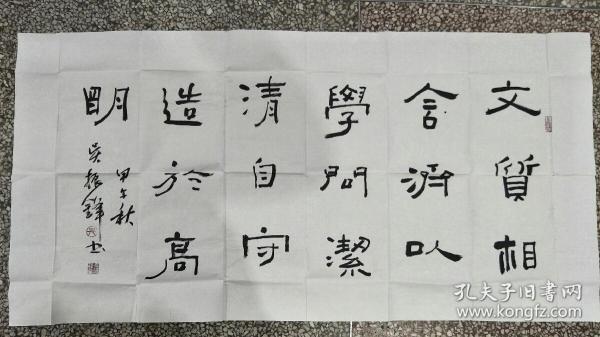 文質相
含濟以
學問潔
清自守
造於高
明
甲午秋
吴振鋒书
孔夫子旧书网
www.kongfz.com